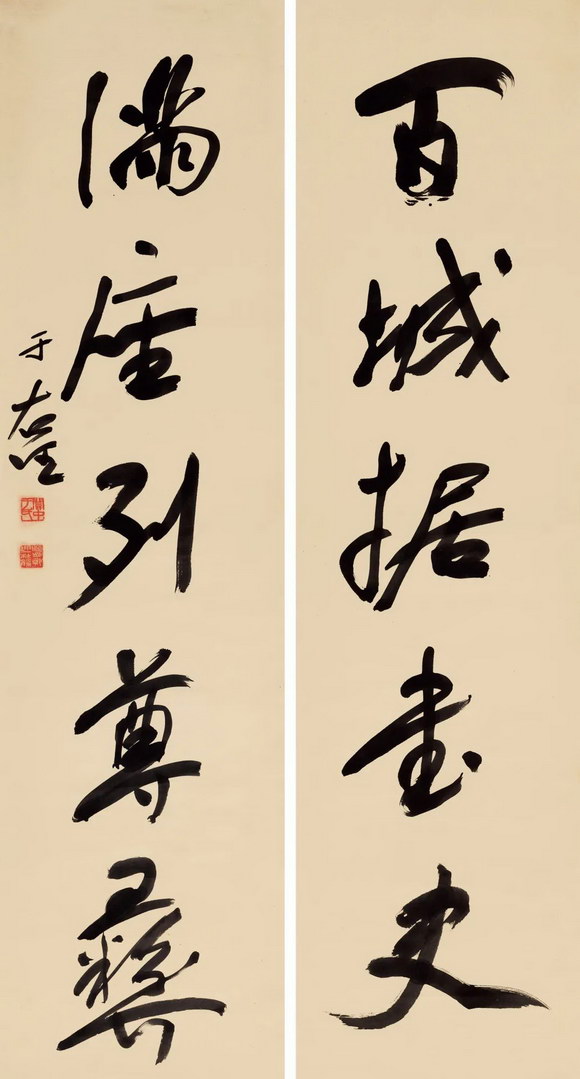 百城据書史
滿座列尊彝
于右任